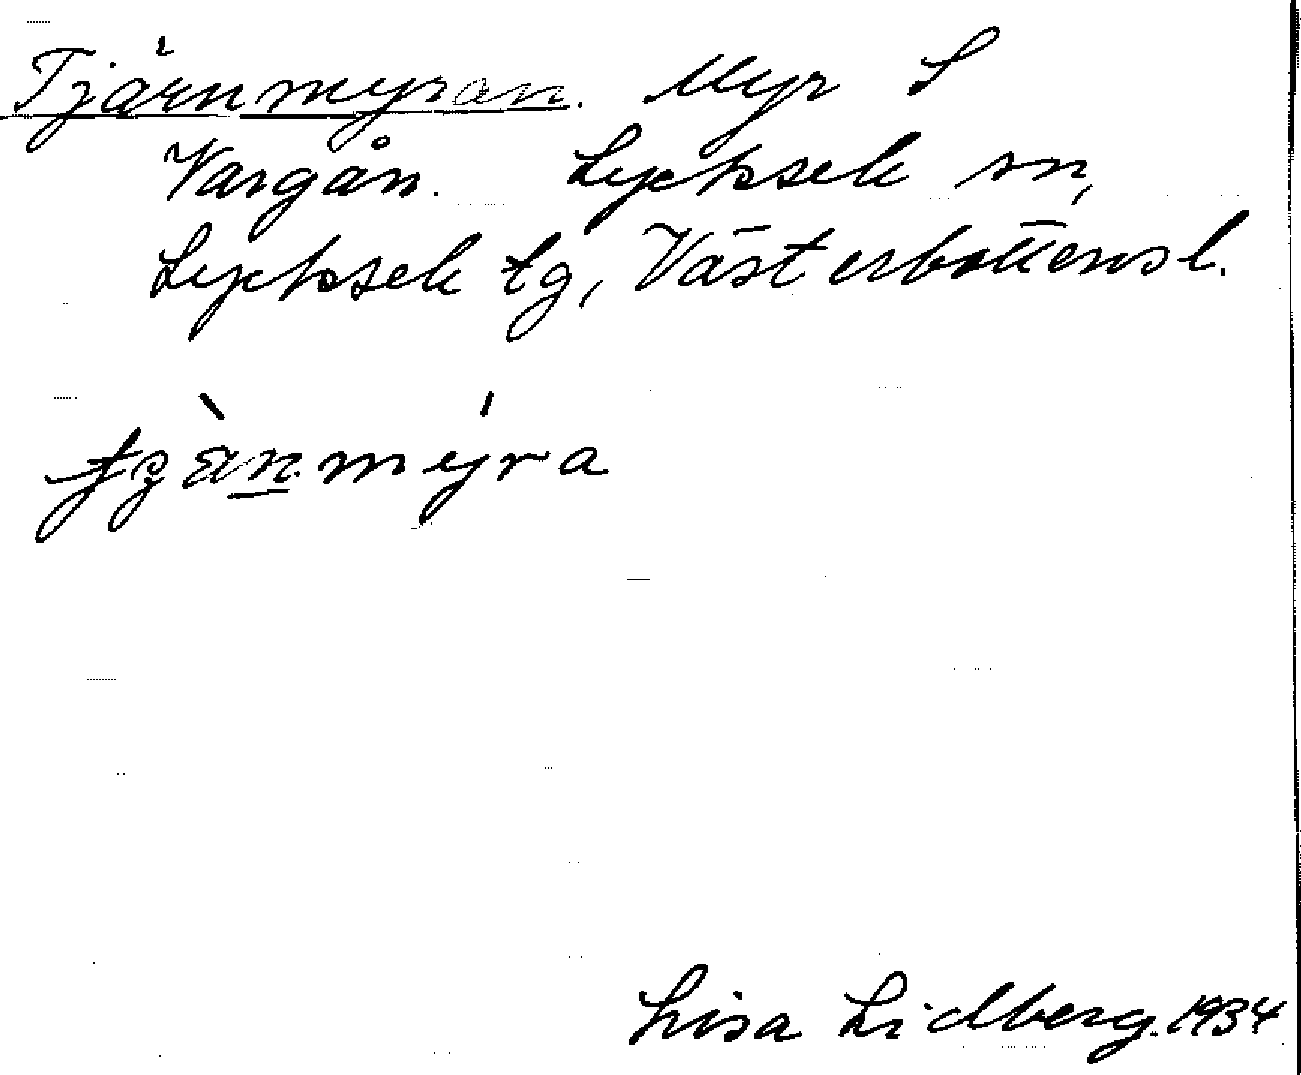 Tjärnmyran. Myr S
Vargån. Lycksele sn,
Lycksele tg, Västerbottensl.
myra
Lisa Lidberg. 1934